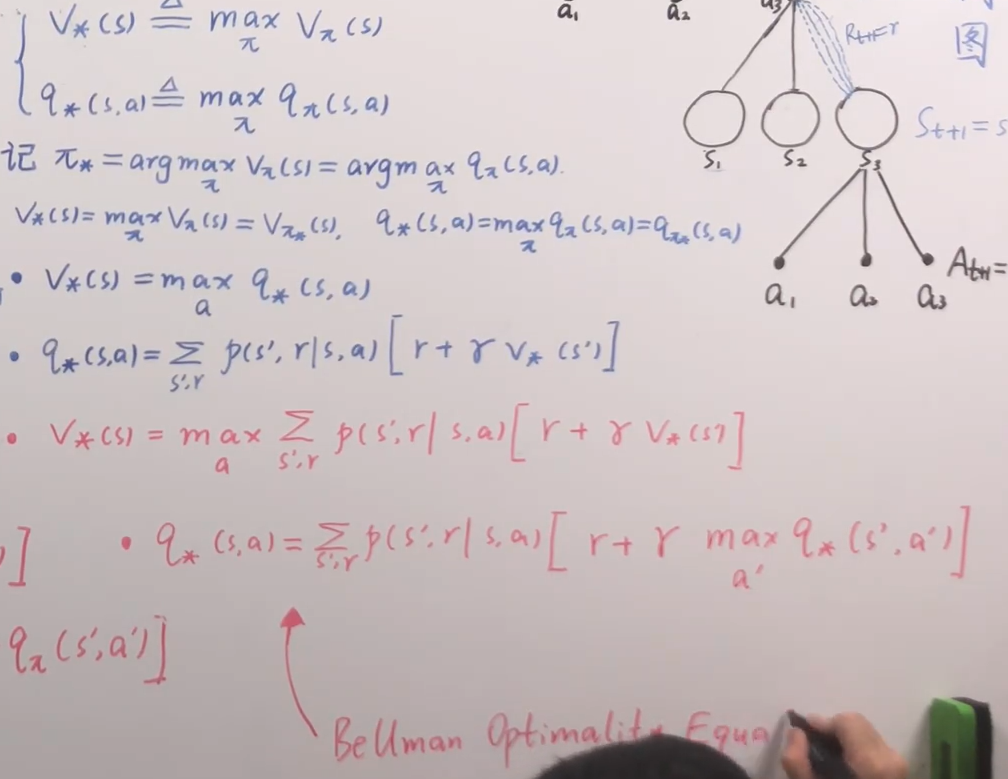 V*(s) ≜ max_π V_π(s)
q*(s,a) ≜ max_π q_π(s,a)
记 π* = argmax_π V_π(s) = argmax_π q_π(s,a).
V*(s) = max_π V_π(s) = V_π*(s), q*(s,a) = max_π q_π(s,a) = q_π*(s,a)
• V*(s) = max_a q*(s,a)
• q*(s,a) = Σ_{s',r} p(s',r|s,a)[r + γ V*(s')]
• V*(s) = max_a Σ_{s',r} p(s',r|s,a)[r + γ V*(s')]
]
• q*(s,a) = Σ_{s',r} p(s',r|s,a)[r + γ max_{a'} q*(s',a')]
q_π(s',a')]
Bellman Optimality Equa
a1 a2 a3
图
S1 S2 S3
St+1 = s
At+1 =
a1 a2 a3